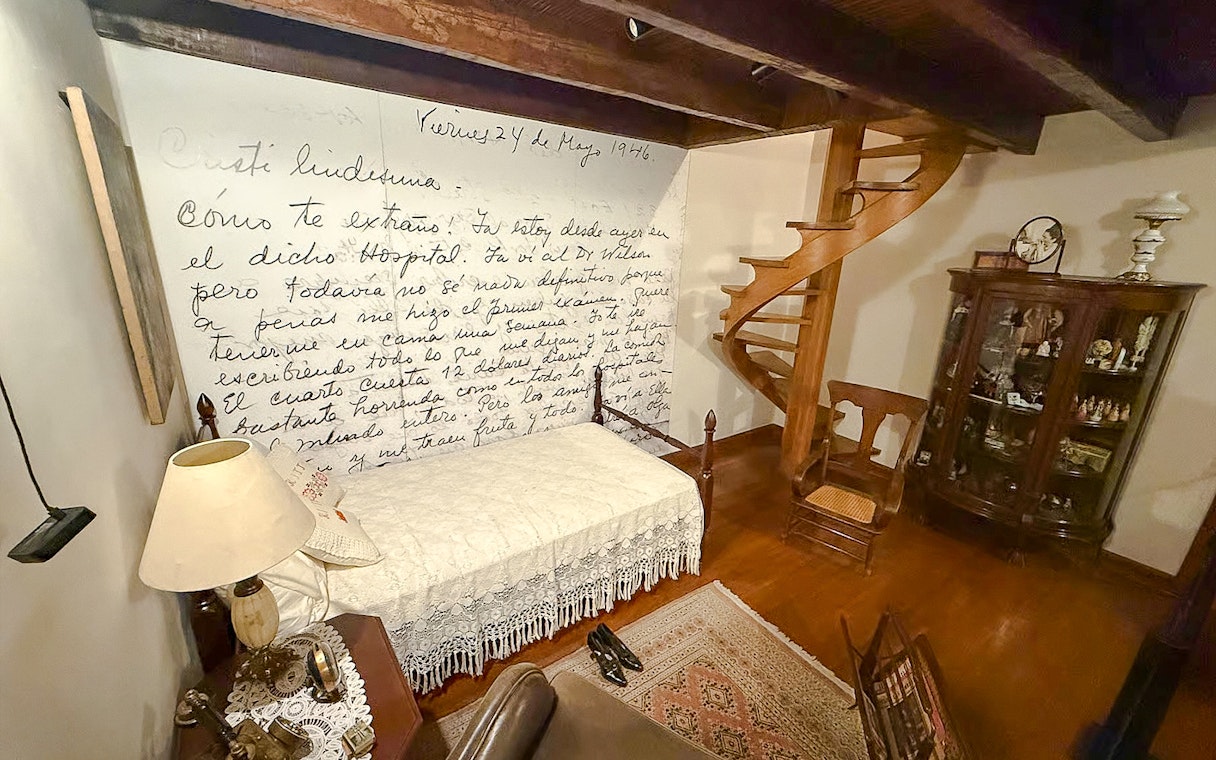 Viernes 24 de Mayo 1946.
Cristi lindísima -
Cómo te extraño! Ya estoy desde ayer en
el dicho Hospital. Ya vi al Dr Wilson
pero todavía no sé nada definitivo porque
a penas me hizo el primer exámen. Quiere
tenerme en cama una semana. Yo te iré
escribiendo todo lo que me digan y me hagan
El cuarto cuesta 12 dólares diarios. La comida
bastante horrenda como en todo los hospitales
mundo entero. Pero los amigos
y me traen fruta y todo